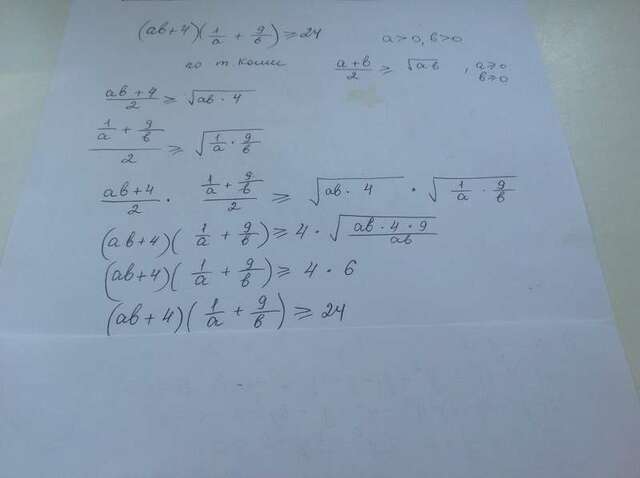 (ab+4)(1/a + 9/b) ≥ 24 a>0, b>0
по т. Коши (a+b)/2 ≥ √(ab), a≥0 b≥0
(ab+4)/2 ≥ √(ab·4)
(1/a + 9/b)/2 ≥ √(1/a · 9/b)
(ab+4)/2 · (1/a + 9/b)/2 ≥ √(ab·4) · √(1/a · 9/b)
(ab+4)(1/a + 9/b) ≥ 4·√((ab·4·9)/(ab))
(ab+4)(1/a + 9/b) ≥ 4·6
(ab+4)(1/a + 9/b) ≥ 24